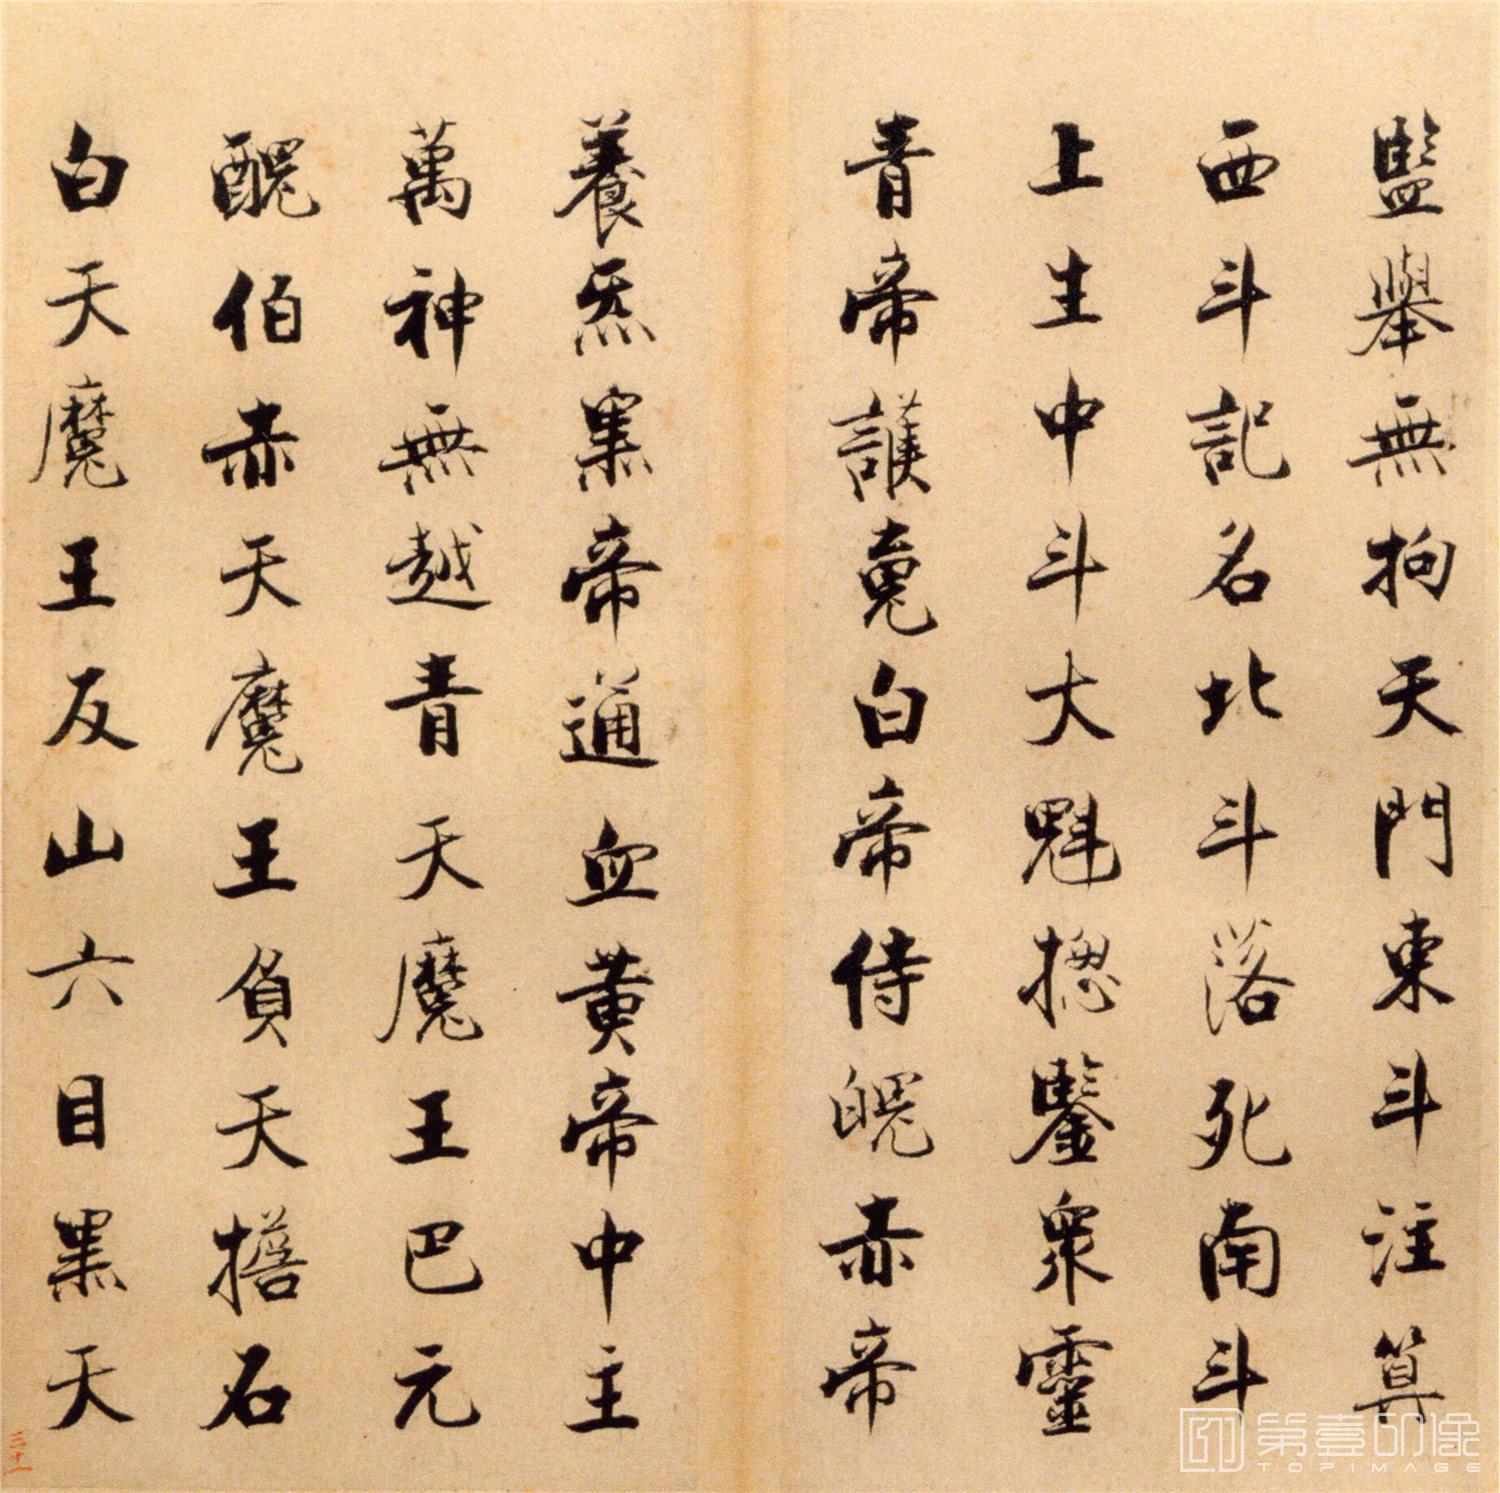 監舉無拘天門東斗注算
西斗記名北斗落死南斗
上生中斗大魁揔鑒衆靈
青帝護䰟白帝侍魄赤帝
養炁黑帝通血黃帝中主
萬神無越青天魔王巴元
醜伯赤天魔王負天擔石
白天魔王反山六目黑天
三十一
第壹印像
TOPIMAGE